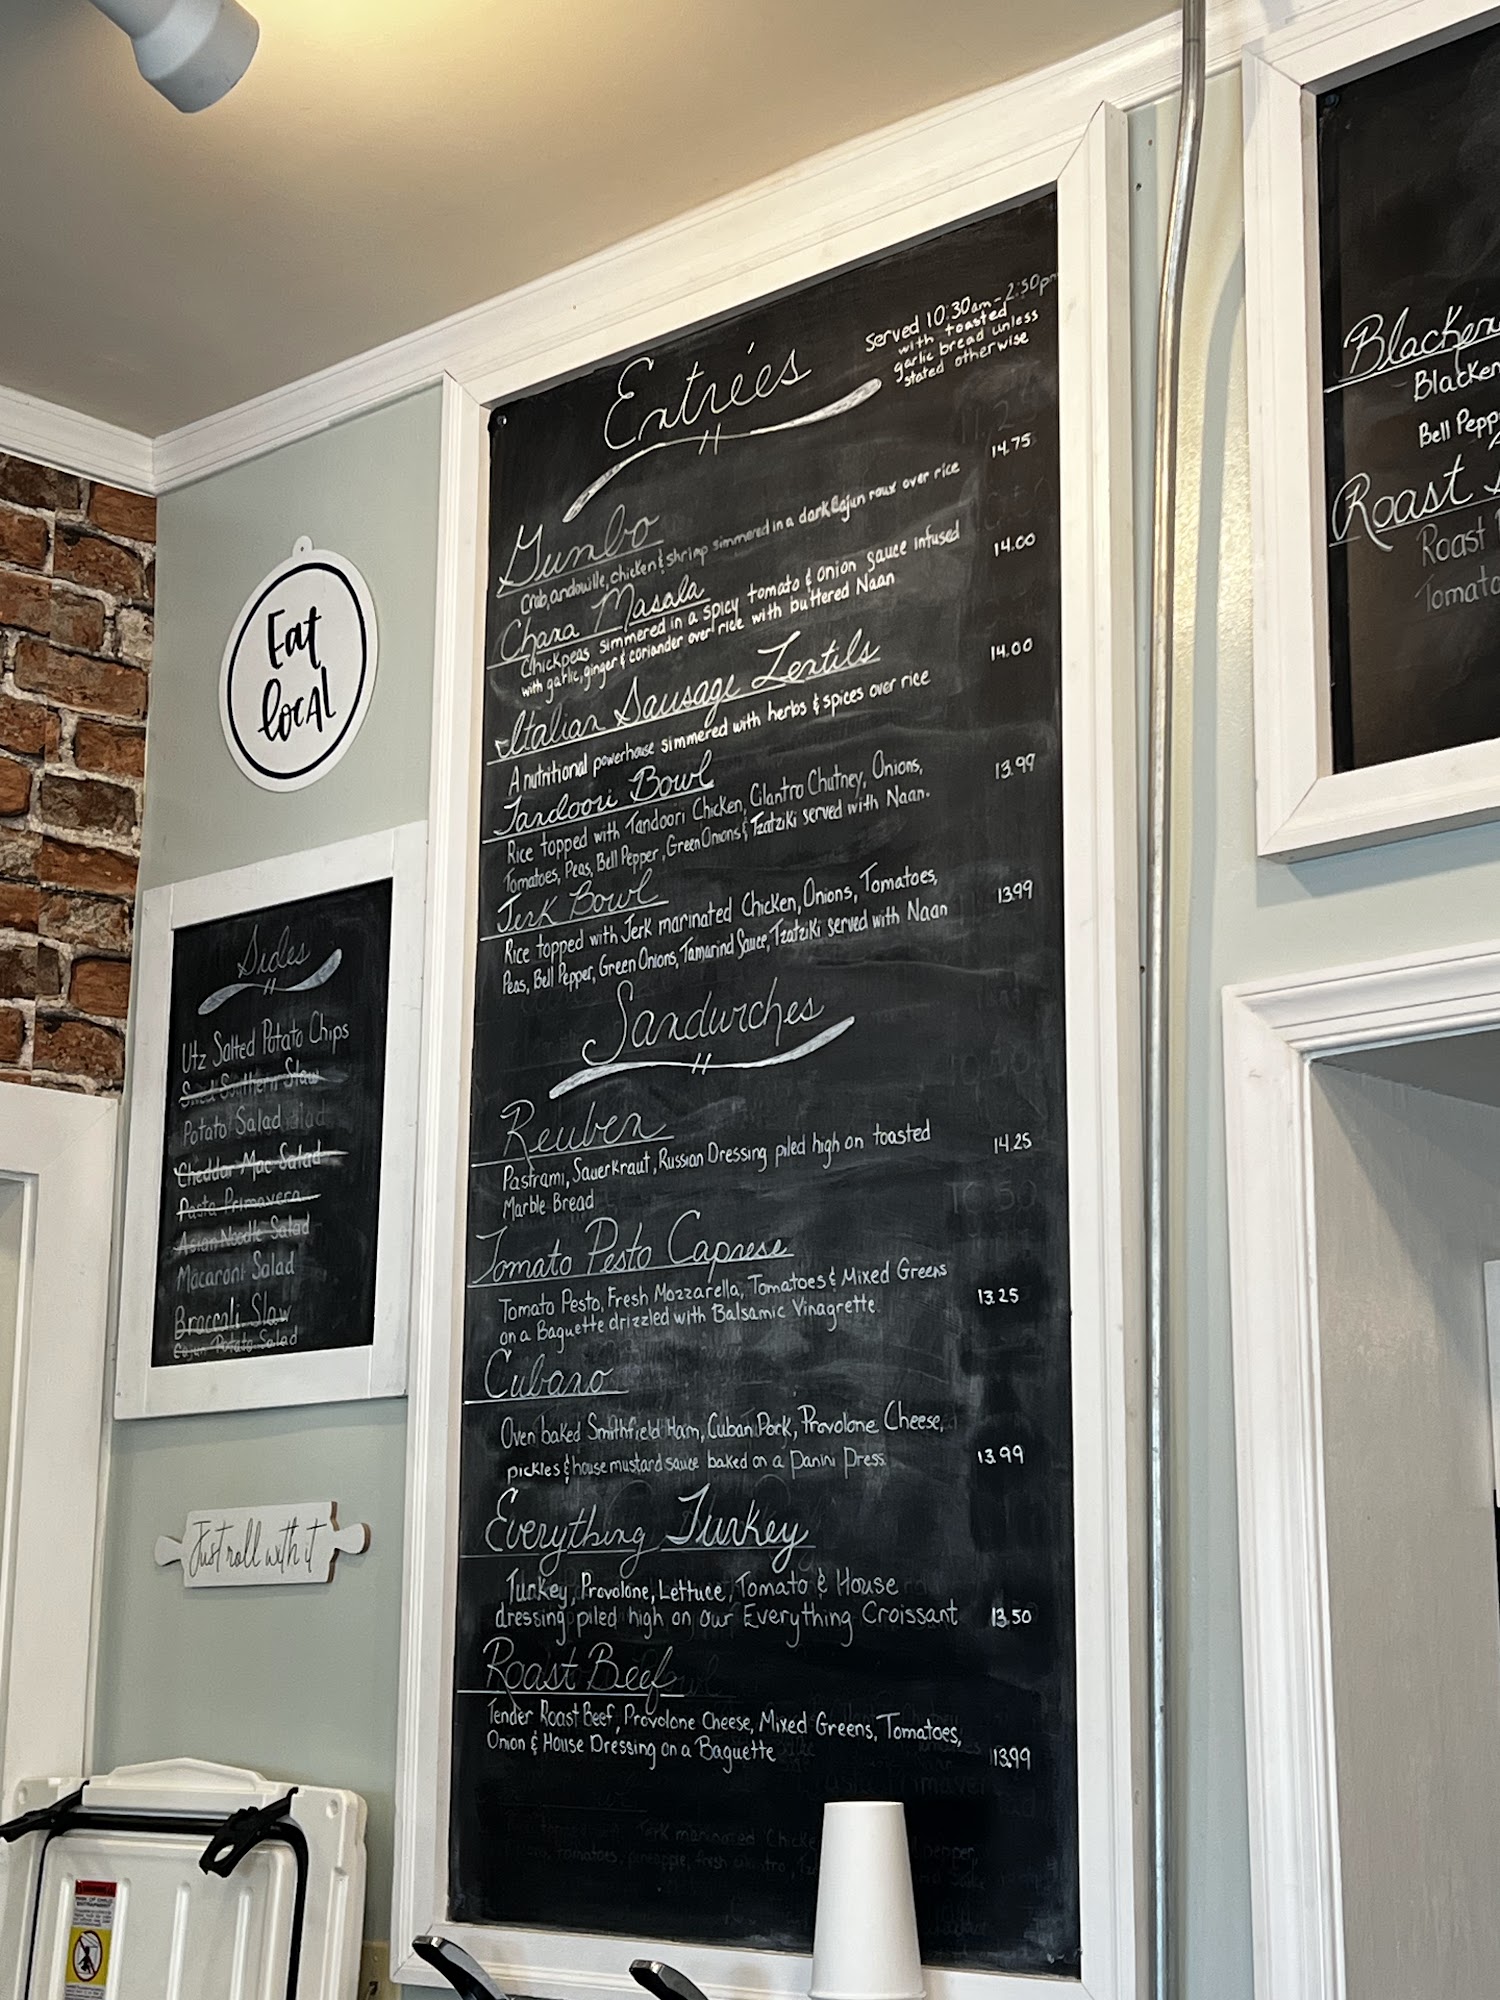 Entrées
Served 10:30am-2:30pm
with toasted
garlic bread unless
stated otherwise
Gumbo
Crab, andouille, chicken & shrimp simmered in a dark Cajun roux over rice
14.75
Chana Masala
Chickpeas simmered in a spicy tomato & onion sauce infused
with garlic, ginger & coriander over rice with buttered Naan
14.00
Italian Sausage Lentils
A nutritional powerhouse simmered with herbs & spices over rice
14.00
Tandoori Bowl
Rice topped with Tandoori Chicken, Cilantro Chutney, Onions,
Tomatoes, Peas, Bell Pepper, Green Onions & Tzatziki served with Naan.
13.99
Jerk Bowl
Rice topped with Jerk marinated Chicken, Onions, Tomatoes,
Peas, Bell Pepper, Green Onions, Tamarind Sauce, Tzatziki served with Naan
13.99
Sandwiches
Reuben
Pastrami, Sauerkraut, Russian Dressing piled high on toasted
Marble Bread
14.25
Tomato Pesto Caprese
Tomato Pesto, Fresh Mozzarella, Tomatoes & Mixed Greens
on a Baguette drizzled with Balsamic Vinagrette
13.25
Cubano
Oven baked Smithfield Ham, Cuban Pork, Provolone Cheese,
pickles & house mustard sauce baked on a Panini Press
13.99
Everything Turkey
Turkey, Provolone, Lettuce, Tomato & House
dressing piled high on our Everything Croissant
13.50
Roast Beef
Tender Roast Beef, Provolone Cheese, Mixed Greens, Tomatoes,
Onion & House Dressing on a Baguette
13.99
Eat
local
Sides
Utz Salted Potato Chips
Southern Slaw
Potato Salad
Cheddar Mac Salad
Pasta Primavera
Asian Noodle Salad
Macaroni Salad
Broccoli Slaw
Cajun Potato Salad
Just roll with it
Blacken
Blacken
Bell Pepp
Roast
Roast
Tomato